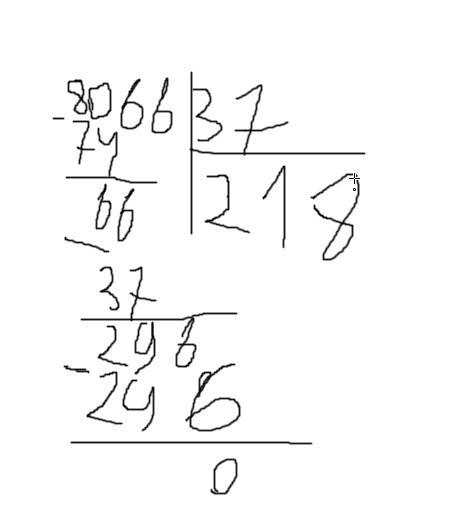 8066 37
- 74 218
66
- 37
296
- 296
0